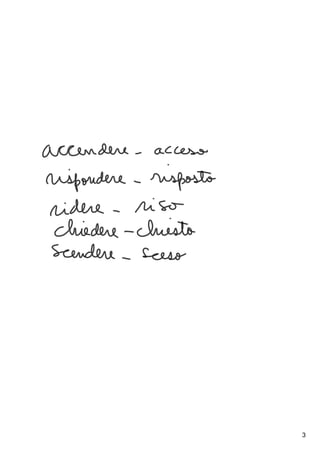 accendere - acceso
rispondere - risposto
ridere - riso
chiedere - chiesto
Scendere - sceso
3